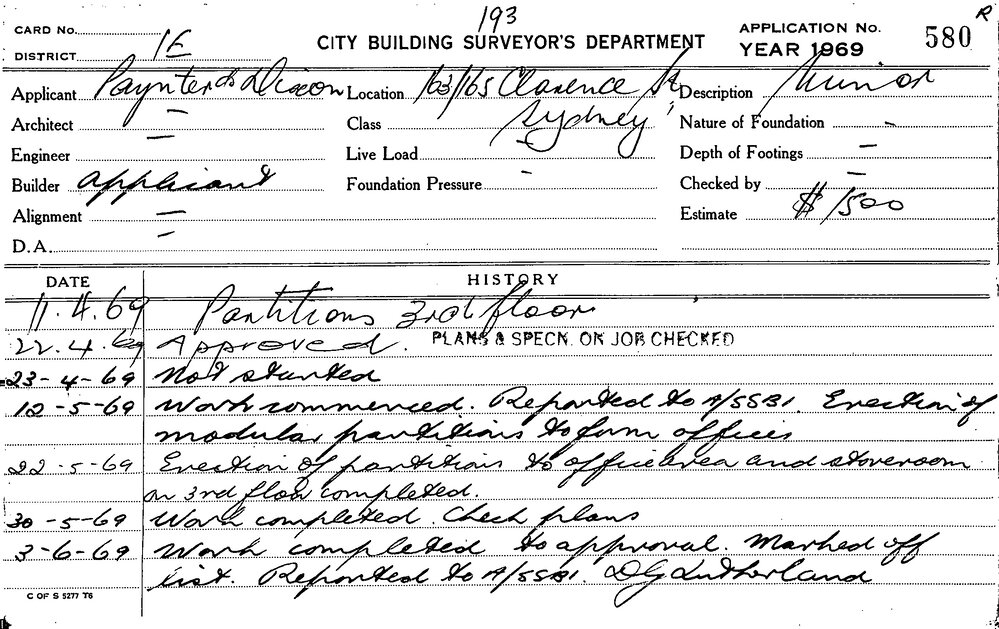 193
R
CARD No.
1E
CITY BUILDING SURVEYOR'S DEPARTMENT
APPLICATION No. 580
DISTRICT
YEAR 1969
Applicant Paynter & Dixon Location 163/165 Clarence St, Description Minor
Architect — Class Sydney Nature of Foundation -
Engineer — Live Load Depth of Footings —
Builder applicant Foundation Pressure - Checked by —
Alignment — Estimate $1500
D.A. —
DATE HISTORY
11.4.69 Partitions 3rd floor
22.4.69 Approved. PLANS & SPECN. ON JOB CHECKED
23-4-69 Not started
12-5-69 Work commenced. Reported to A/SSBI. Erection of
modular partitions to form offices
22-5-69 Erection of partitions to office area and storeroom
on 3rd floor completed.
30-5-69 Work completed. Check plans
3-6-69 Work completed to approval. Marked off
list. Reported to A/SSBI. DG Sutherland
C OF S 5277 T6